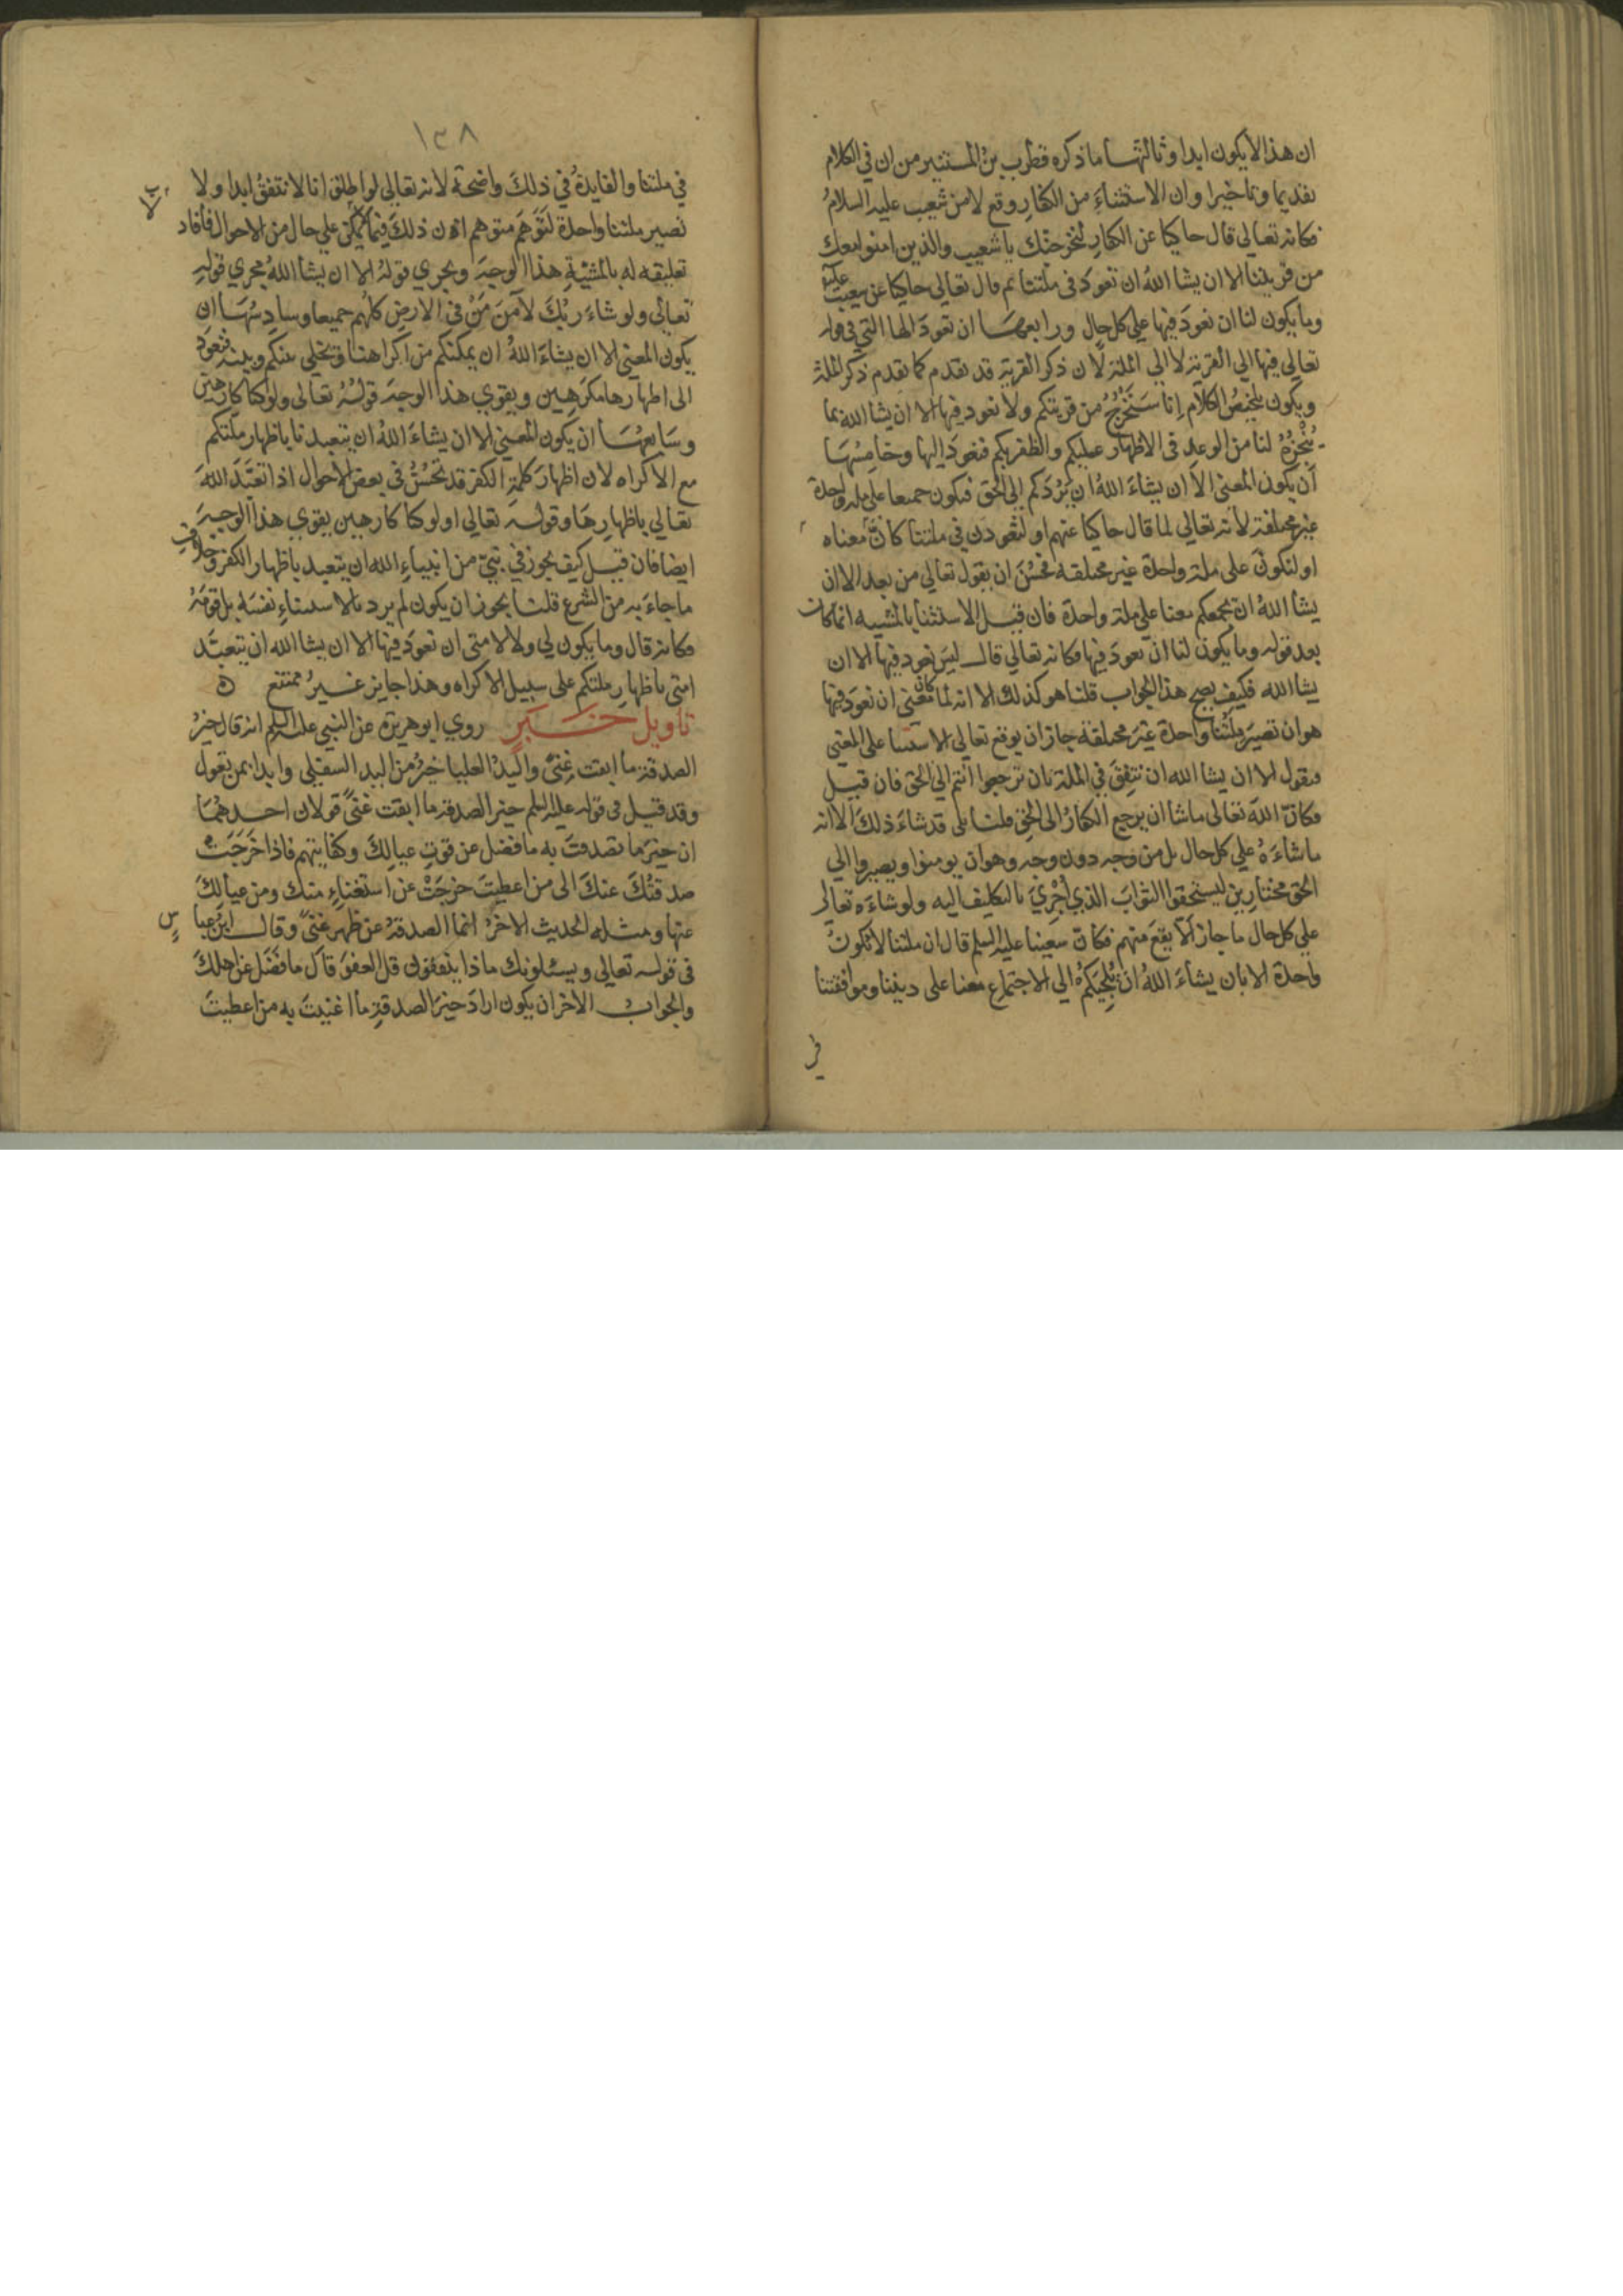 ان هذا لا يكون ابدا وثالثهـا ما ذكره قطرب بنُ المستنير من ان في الكلام
تقديما وتاخيرا وان الاستثناءَ من الكفارِ وقع لا من شعيب عليه السلامُ
فكانه تعالى قال حاكيا عن الكفارِ لنخرجنّك يا شعيب والذين امنوا معك
من قريتنا الا ان يشا اللهُ ان تعودَ في ملتنا ثم قال تعالى حاكيا عن شعيب عليه
وما يكون لنا ان نعودَ فيها على كل حال ورابعهـا ان تعودَ الها التي في قوله
تعالى فيها الى القرية لا الى الملة لأن ذكر القرية قد تقدم كما تقدم ذكر الملة
ويكون تلخيصُ الكلام إنا سنَخْرُجُ من قريتكم ولا نعود فيها الا ان يشا الله بما
يُنْجِزهُ لنا من الوعد في الاظهار عليكم والظفر بكم فنعودَ إليها وخامِسُهَا
أنْ يكون المعنى الا ان يشاءَ اللهُ ان يَرُدّكم الى الحق فنكون جميعا على ملة واحدة
غير مختلفة لأنه تعالى لما قال حاكيا عنهم او لتعودن في ملتنا كانَّ معناه
او لنكونَ على ملة واحدة غير مختلفة فحَسُنَ ان يقول تعالى من بعد الا ان
يشأ اللهُ ان يجمعكم معنا على ملة واحدة فان قيـل الاستثنا بالمشيه انما كان
بعد قوله وما يكون لنا ان نعودَ فيها فكانه تعالى قالـ ليس نعود فيها الا ان
يشا الله فكيف يصح هذا الجواب قلنا هو كذلك الا انه لما كان معنى ان نعودَ فيها
هو ان تصيرَ ملتُنا واحدة غيرَ مختلفة جاز ان يوقع تعالى الاستثنا على المعنى
فيقول الا ان يشا الله ان نتفقَ في الملة بان ترجعوا انتم الى الحق فان قيـل
فكانّ اللهَ تعالى ما شا ان يرجع الكفارُ الى الحق قلنا بلى قد شاءَ ذلك الا انه
ما شاءَهُ على كل حال بل من وجه دون وجه وهو ان يومنوا ويصيروا الى
الحق مختارِين ليستحقوا الثوابَ الذي اُجْرِيَ بالتكليف اليه ولو شاءَه تعالى
على كل حال ما جاز ألا يقعَ منهم فكانّ شعيبا عليه السلم قال ان ملتنا لا تكونُ
واحدة الا بان يشاءَ اللهُ انْ يُلجِيَكمُ الى الاجتماعِ معنا على ديننا وموافقتنا
في
١٣٨
في ملتنا والفايدةُ في ذلكَ واضحة لأنه تعالى لو اطلق انا لا نتفقُ ابدا ولا
تصير ملتنا واحدة لتَوَهَّمَ متوهم انّ ذلكَ فيما لا يمكن على حال من الاحوال فأفاد
تعليقه له بالمشيّةِ هذا الوجهَ ويجري قوله الا ان يشأ اللهُ مجرى قوله
تعالى ولو شاءَ ربُّكَ لآمنَ مَنْ في الارضِ كلُّهم جميعا وسادِسُهَا ان
يكون المعنى الا ان يشاءَ اللهُ ان يمكنكم من اكراهنا ويخلي بينكم وبينه فنعودَ
الى اظهارها مكرَهِين ويقوي هذا الوجهَ قولُهُ تعالى اولو كنا كارهين
وسَابعُهـا ان يكون المعنى الا ان يشاءَ اللهُ ان يتعبدنا باظهار ملتكم
مع الاكراه لان اظهارَ كلمةِ الكفر قد تحسُنُ في بعض الاحوال اذا تعبَّدَ اللهُ
تعالى باظهارِهَا وقولـه تعالى اولو كنا كارهين يقوي هذا الوجهَ
ايضا فان قيـل كيف يجوز في نبيّ من انبياءِ الله ان يتعبد باظهار الكفرِ وخلافِ
ما جاءَ به من الشرع قلنـا يجوز ان يكون لم يرد بالاستثناءِ نفسَه بل قومَهُ
فكانه قال وما يكون لي ولا لامتي ان نعودَ فيها الا ان يشا الله ان يتعبَّد
امتي باظهارِ ملتكم على سبيل الاكراه وهذا جايز غيـرُ ممتنع ه
تاويل خـبر روي ابو هريرة عن النبي عليه السلم انه قال خيرُ
الصدقة ما ابقت غنىً واليدُ العليا خيرٌ من اليد السفلى وابدا بمن تعول
وقد قيل في قوله عليه السلم خير الصدقة ما ابقت غنىً قولان احـدهُمَا
ان خيرَ ما تصدقتَ به ما فضل عن قوتِ عيالِكَ وكفايتهم فاذا خَرَجَتْ
صدقتُكَ عنكَ الى من اعطيتَ خرجَتْ عن استغناءٍ منك ومن عيالِكَ
عنها ومثـله الحديث الاخرُ انما الصدقةُ عن ظهر غنىً وقالـ ابنُ عباسٍ
في قولـه تعالى ويسئلونك ماذا ينفقون قل العفوَ قال ما فَضَلَ عن اهلكَ
والجوابُ الاخر ان يكون ارادَ خيرَ الصدقةِ ما اغنيتَ به من اعطيتَ